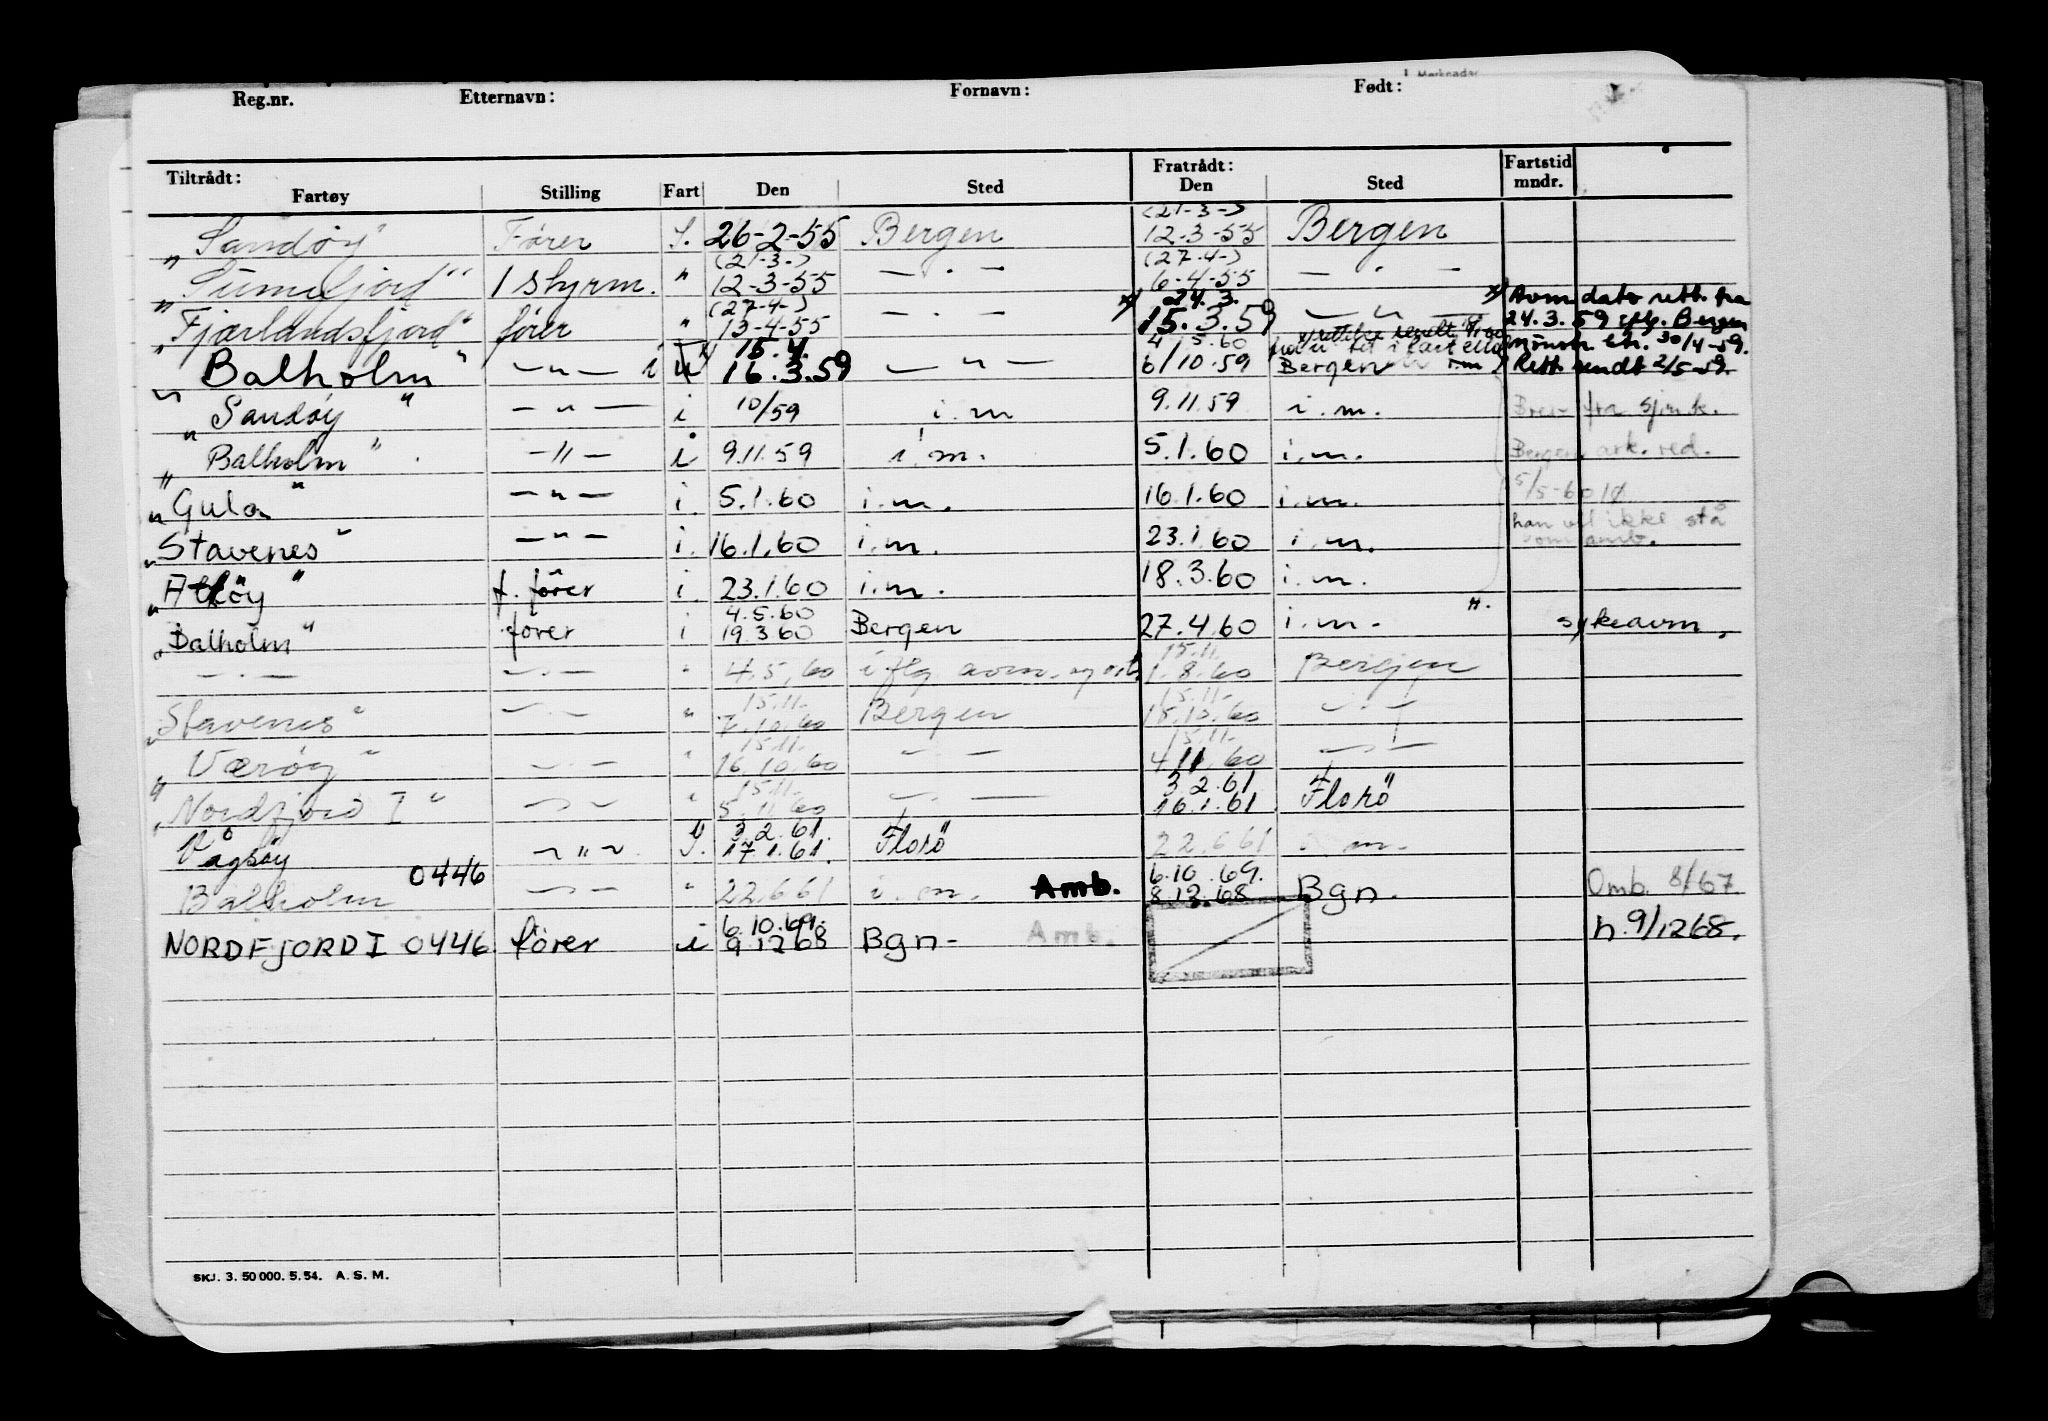 Merknader
Reg.nr. Etternavn: Fornavn: Født:
Tiltrådt: Fratrådt: Fartstid mndr.
Fartøy Stilling Fart Den Sted Den Sted
(21-3-)
"Sandøy" Fører S. 26-2-55 Bergen 12-3-55 Bergen
(21-3-) (27-4-)
1 styrm. " 12-3-55 — . — 6-4-55 — . —
(27-4-) 24.3. x) Avm dato rett. fra
"Fjærlandsfjord" fører " 13-4-55 x) 15.3.59 — " — 24.3.59 iflg. Bergen
15.4. 4/5.60 30/4-59.
"Balholm" — " — i 16.3.59 — " — 6/10.59 Bergen Rett sendt 2/5-59.
"Sandøy" — " — i 10/59 i.m 9.11.59 i.m. Brev fra Sjm.k.
"Balholm" — " — i 9.11.59 i.m. 5.1.60 i.m. Bergen ark. ved.
"Gula" — " — i. 5.1.60 i.m. 16.1.60 i.m. 5/5-60
"Stavenes" — " — i. 16.1.60 i.m. 23.1.60 i.m. han vil ikke stå som amb.
f. fører i. 23.1.60 i.m. 18.3.60 i.m.
4.5.60
"Balholm" fører i 19.3.60 Bergen 27.4.60 i.m. sykeavm.
15.11.
— . — — . — " 4.5.60 iflg avm. 1.8.60 Bergen
15.11. 15.11.
"Stavenes" — . — " 7.10.60 Bergen 15.10.60 — . —
15.11. 15.11.
"Værøy" — . — " 16.10.60 — . — 4.11.60 — . —
15.11. 3.2.61
"Nordfjord I" — . — " 5.11.60 — . — 16.1.61 Florö
3.2.61.
Vågsöy — " — S. 17.1.61. Florö 22.6.61 i.m.
0446 6.10.69.
Balholm — . — " 22.6.61 i.m. Amb. 8.12.68 Bgn. Omb. 8/67
6.10.69.
NORDFJORD I 0446 fører i 9.12.68 Bgn- Amb. h.9/1268.
SKJ. 3. 50 000. 5. 54. A. S. M.